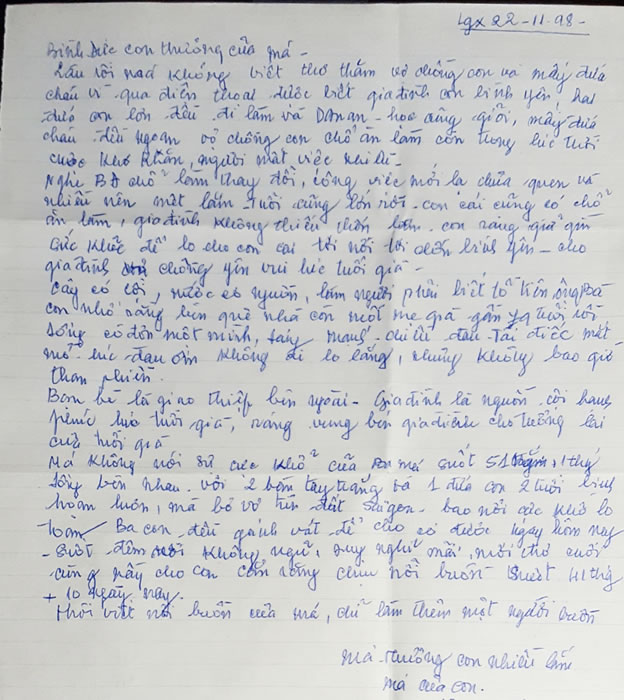 Lgx 22-11-98-
Bình Đức con thương của má -
Lâu rồi má không viết thơ thăm vợ chồng con và mấy đứa
cháu vì qua điện thoại được biết gia đình con bình yên, hai
đứa con lớn đều đi làm và học cũng giỏi, mấy đứa
cháu đều ngoan vợ chồng con chỗ ăn làm còn trong lúc thời
cuộc khó khăn, người mất việc nhiều-
Nghe Ba chỗ làm thay đổi, công việc mới lạ chưa quen và
nhiều nên mệt lắm tuổi cũng lớn rồi - con cái cũng có chỗ
ăn làm, gia đình không thiếu thốn lắm - con ráng giữ gìn
sức khỏe để lo cho con cái tới nơi tới chốn bình yên - cho
gia đình chồng yên vui lúc tuổi già -
Cây có cội, nước có nguồn, làm người phải biết tổ tiên ông bà
con nhớ rằng bên quê nhà còn một mẹ già gần tuổi rồi
sống cô đơn một mình, đau tai điếc mắt
mờ lúc đau ốm không ai lo lắng, nhưng không bao giờ
than phiền.
Bạn bè là giao thiệp bên ngoài - Gia đình là nguồn cội hạnh
phúc lúc tuổi già, ráng vung bên gia đình cho tương lai
của tuổi già
Má không nói sự cực khổ của Ba má suốt 51 năm, 1 thg
sống bên nhau. với 2 bàn tay trắng và 1 đứa con 2 tuổi bịnh
hoạn luôn, má bỏ vơ trên đất Saigon - bao nỗi cực khổ lo
Ba con đều gánh vác để cho có được ngày hôm nay
- Suốt đêm không ngủ, suy nghĩ mãi, mới thơ cuối
cùng nầy cho con rằng chịu nỗi buồn suốt 41 thg
+ 10 ngày nay.
Thôi viết nỗi buồn của má, chỉ làm thêm một người buồn
Má thương con nhiều lắm
má của con.